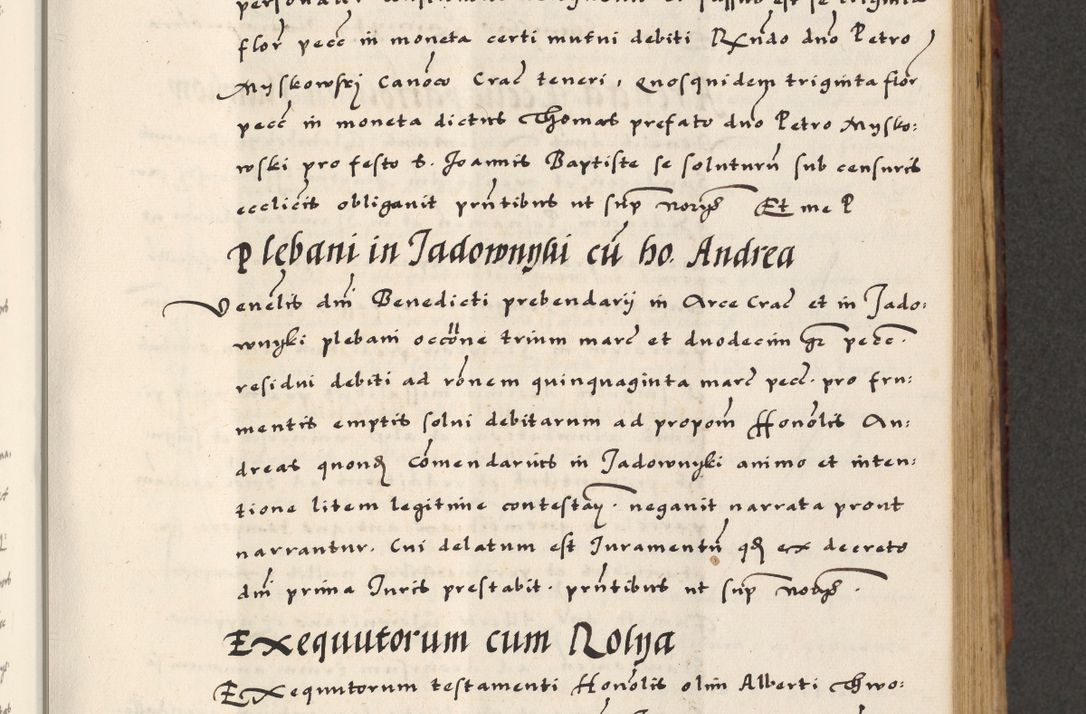 flor̃ pecc̃ in moneta certi mutui debiti R̃ndo dño Petro
Myskowskj Canōco Crac̃ teneri, Quosquidem triginta flor̃
pecc̃ in moneta dictus Thomas prefato dño Petro Mysko:
wski pro festo S. Joannis Baptiste se soluturũ sub censuris
ecclicis obligauit pr̃ntibus ut sup̃ norijs Et me P
Plebani in Jadownyki cũ ho. Andrea
Venẽlis dñi Benedicti prebendarij in Arce Crac̃ et in Jado:
wnyki plebani occõne trium marc̃ et duodecim gr̃ pecc̃.
residui debiti ad rõnem quinquaginta marc̃ pecc̃. pro fru:
mentis emptis solui debitarum ad propom̃ Honõlis An:
dreas quond̃ Cõmendarius in Jadownyki animo et inten:
tione litem legitime contestañ. negauit narrata prout
narrantur. Cui delatum est Juramentũ qd̃ ex decreto
dñi prima Juris prestabit. pr̃ntibus ut sup̃ norijs.
Exequutorum cum Rolya
Exequutorum testamenti Honõlis olim Alberti Thwo: